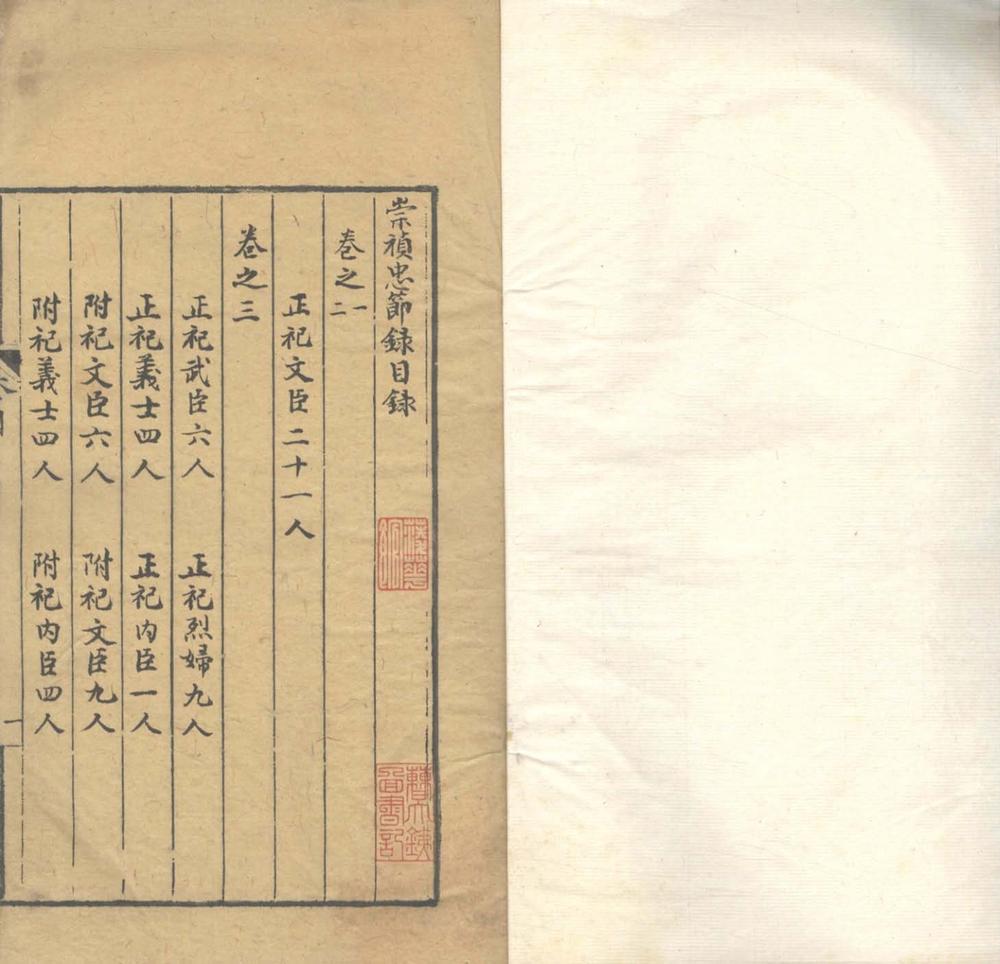 崇禎忠節録目録
巻之一二
正祀文臣二十一人
巻之三
正祀武臣六人　正祀烈婦九人
正祀義士四人　正祀内臣一人
附祀文臣六人　附祀文臣九人
附祀義士四人　附祀内臣四人
一